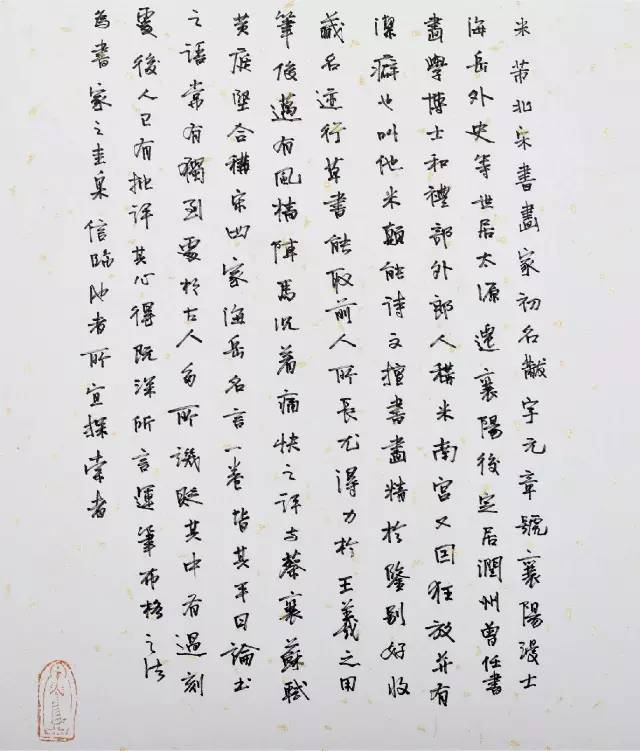 米芾北宋書畫家初名黻字元章號襄陽漫士
海岳外史等世居太源遷襄陽後定居潤州曾任書
畫學博士和禮部外郎人稱米南宮又因狂放并有
潔癖也叫他米顛能詩文擅書畫精於鑒别好收
藏名迹行草書能取前人所長尤得力於王羲之用
筆俊邁有風檣陣馬沉着痛快之評与蔡襄蘇軾
黄庭堅合稱宋四家海岳名言一卷皆其平日論書
之語常有獨到處於古人多所譏貶其中有過刻
處後人已有批評其心得既深所言運筆布格之法
為書家之圭臬信臨池者所宜探索者